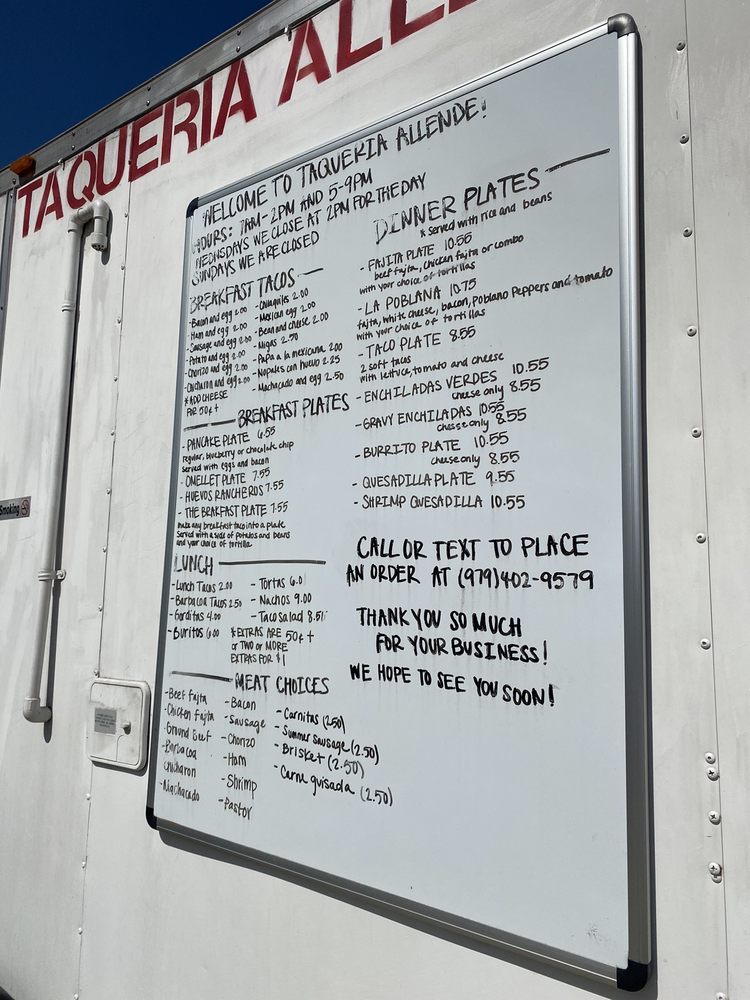 TAQUERIA ALLE
WELCOME TO TAQUERIA ALLENDE!
HOURS: 7AM-2PM AND 5-9PM
WEDNSDAYS WE CLOSE AT 2PM FOR THE DAY
SUNDAYS WE ARE CLOSED
BREAKFAST TACOS
- Bacon and egg 2.00
- Ham and egg 2.00
- Sausage and egg 2.00
- Potato and egg 2.00
- Chorizo and egg 2.00
- Chicharon and egg 2.00
* ADD CHEESE
FOR 50¢+
- Chilaquiles 2.00
- Mexican egg 2.00
- Bean and cheese 2.00
- Migas 2.50
- Papa a la mexicana 2.00
- Nopales con huevo 2.25
- Machacado and egg 2.50
BREAKFAST PLATES
- PANCAKE PLATE 6.55
regular, blueberry or chocolate chip
served with eggs and bacon
- OMELLET PLATE 7.55
- HUEVOS RANCHEROS 7.55
- THE BRAKFAST PLATE 7.55
make any breakfast taco into a plate
Served with a side of potatos and beans
and your choice of tortilla
LUNCH
- Lunch Tacos 2.00
- Barbacoa Tacos 2.50
- Gorditas 4.00
- Buritos 6.00
- Tortas 6.0
- Nachos 9.00
- Taco Salad 8.5
* EXTRAS ARE 50¢+
or TWO or MORE
EXTRAS FOR $1
MEAT CHOICES
- Beef Fajita
- Chicken Fajita
- Ground Beef
- Barbacoa
- Chicharon
- Machacado
- Bacon
- Sausage
- Chorizo
- Ham
- Shrimp
- Pastor
- Carnitas (2.50)
- Summer Sausage (2.50)
- Brisket (2.50)
- Carne guisada (2.50)
DINNER PLATES
* Served with rice and beans
- FAJITA PLATE 10.55
beef fajita, chicken fajita or combo
with your choice of tortillas
- LA POBLANA 10.75
fajita, white cheese, bacon, Poblano Peppers and tomato
with your choice of tortillas
- TACO PLATE 8.55
2 soft tacos
with lettuce, tomato and cheese
- ENCHILADAS VERDES 10.55
cheese only 8.55
- GRAVY ENCHILADAS 10.55
cheese only 8.55
- BURRITO PLATE 10.55
cheese only 8.55
- QUESADILLA PLATE 9.55
- SHRIMP QUESADILLA 10.55
CALL OR TEXT TO PLACE
AN ORDER AT (979)402-9579
THANK YOU SO MUCH
FOR YOUR BUSINESS!
WE HOPE TO SEE YOU SOON!
Smoking